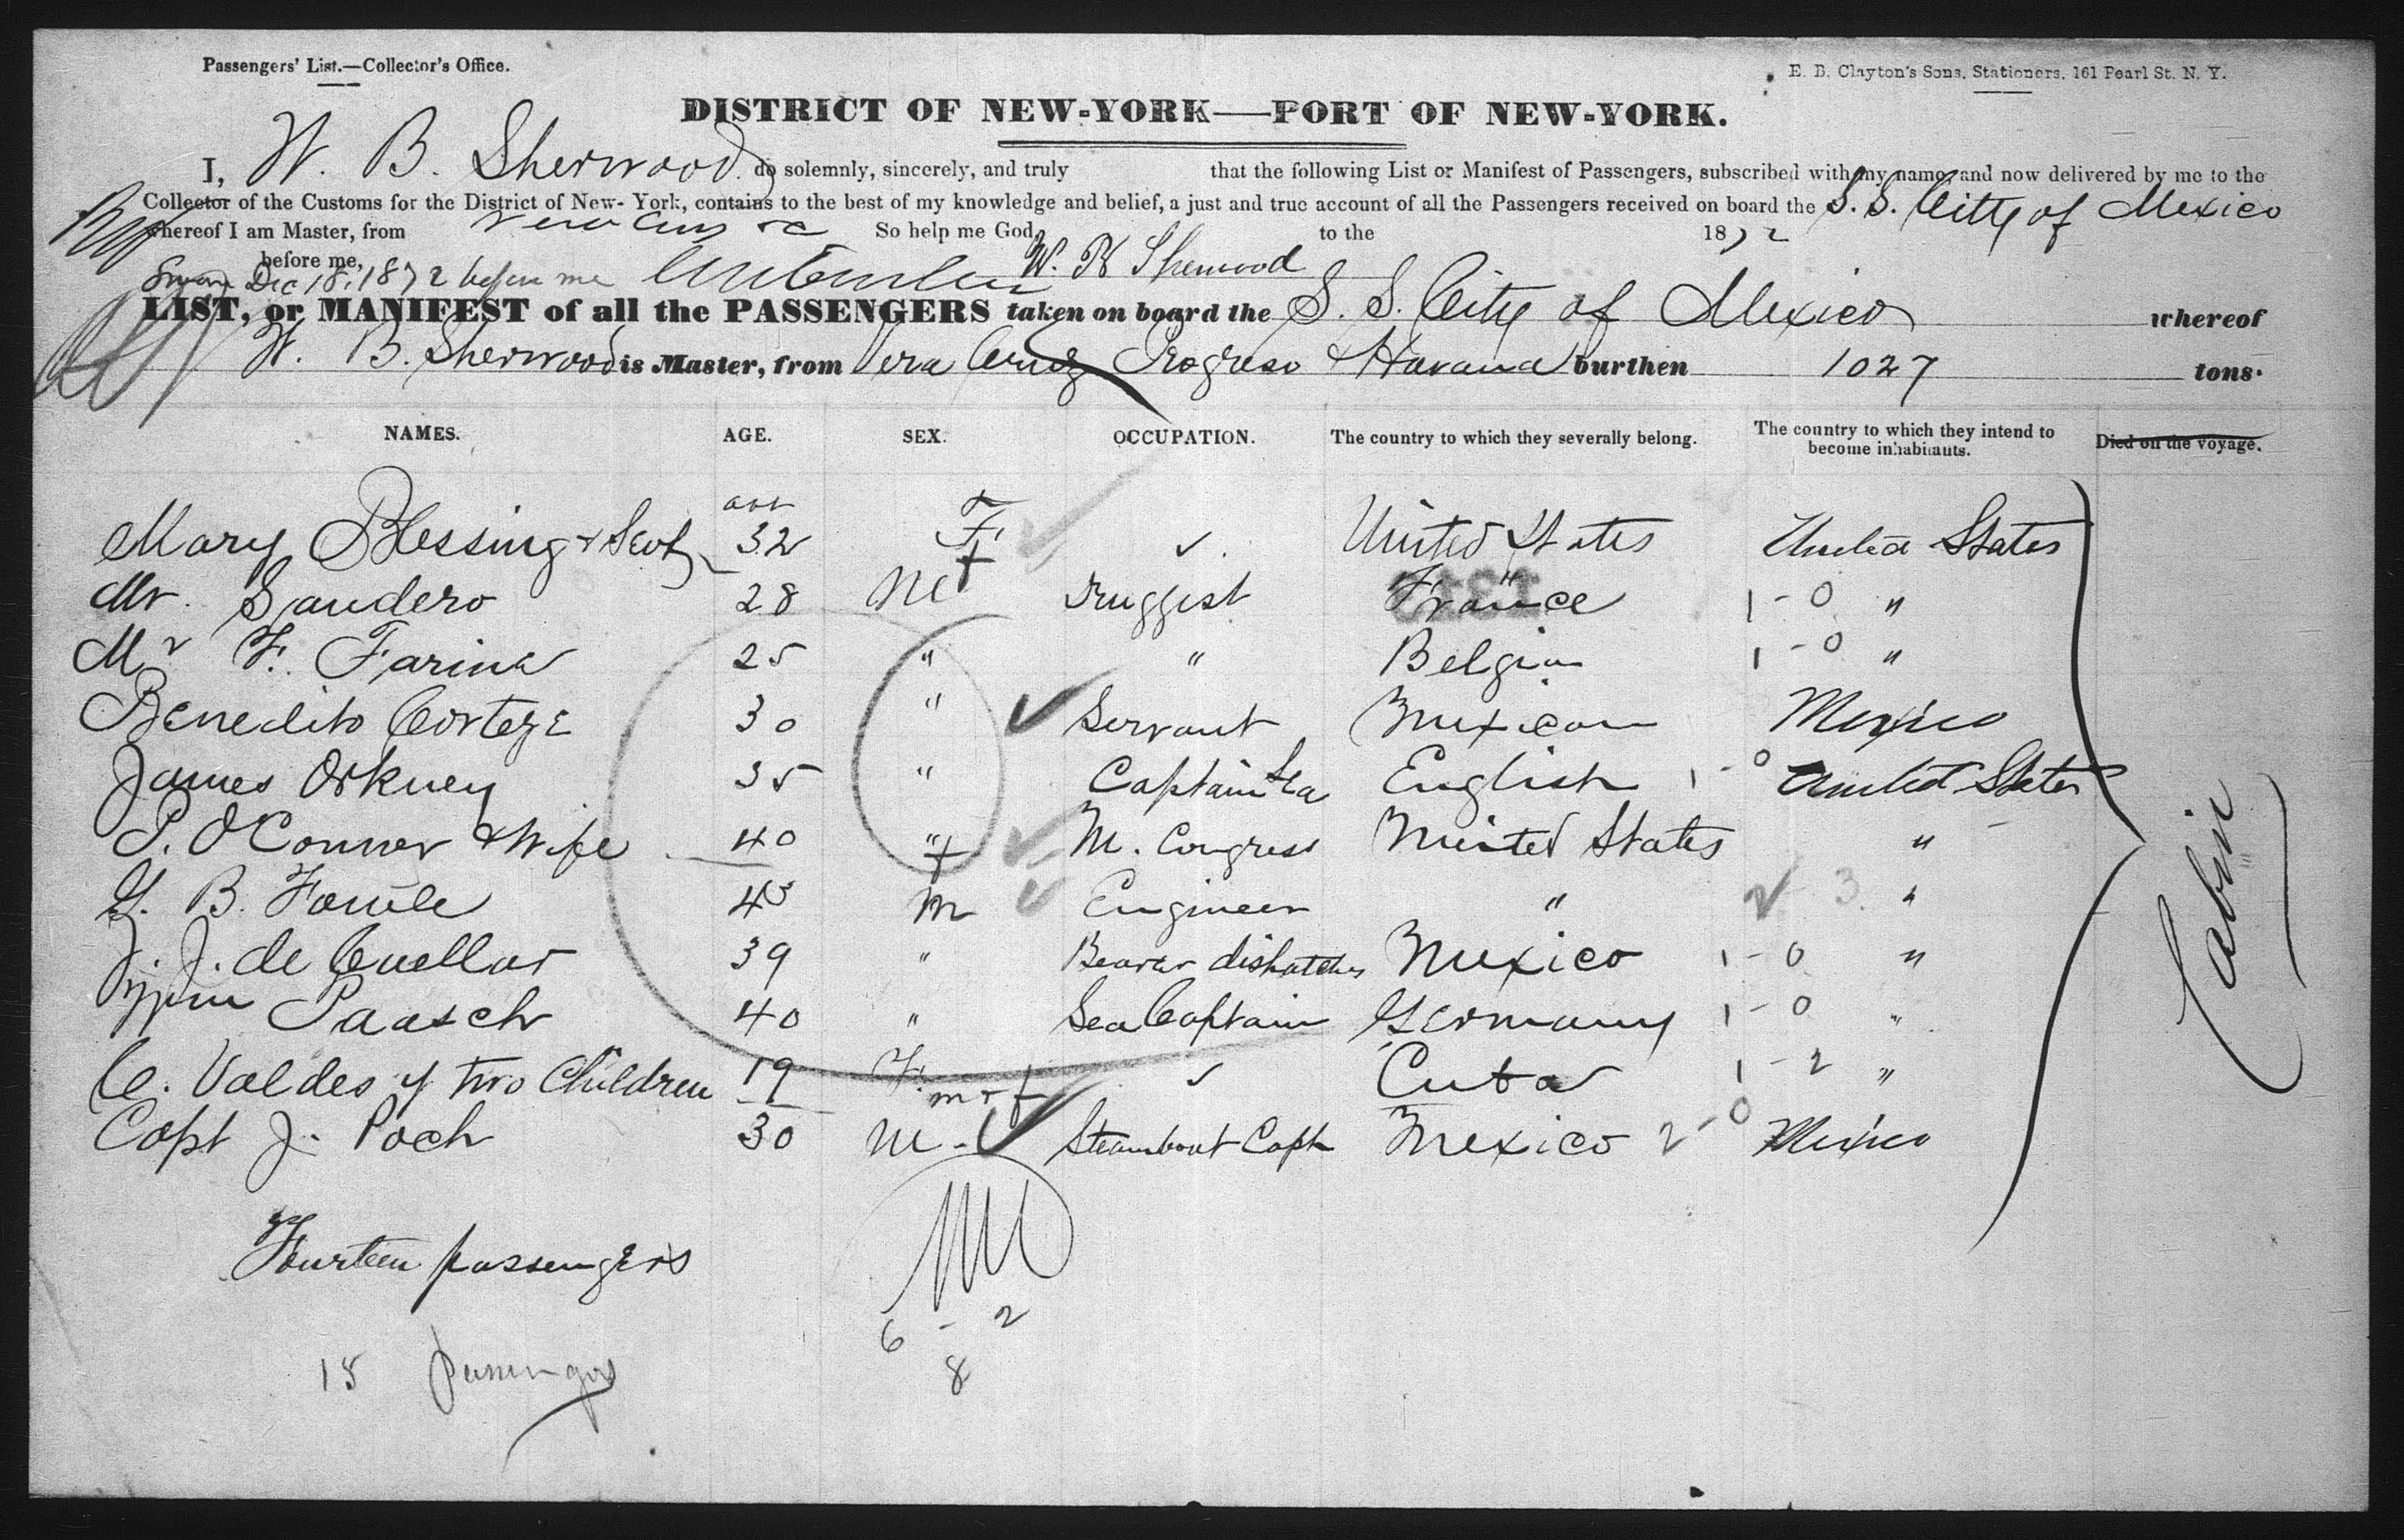 Passengers' List.—Collector's Office.
E. B. Clayton's Sons, Stationers, 161 Pearl St. N. Y.
DISTRICT OF NEW-YORK—PORT OF NEW-YORK.
I, W. B. Sherwood do solemnly, sincerely, and truly that the following List or Manifest of Passengers, subscribed with my name and now delivered by me to the
Collector of the Customs for the District of New-York, contains to the best of my knowledge and belief, a just and true account of all the Passengers received on board the S. S. City of Mexico
whereof I am Master, from Vera Cruz &c So help me God, to the 1872
W. B Sherwood
before me,
Sworn Dec 18, 1872 before me
LIST, or MANIFEST of all the PASSENGERS taken on board the S. S. City of Mexico whereof
W. B. Sherwood is Master, from Vera Cruz Progreso & Havana burthen 1027 tons.
NAMES. AGE. SEX. OCCUPATION. The country to which they severally belong. The country to which they intend to become inhabitants. Died on the voyage.
Mary Blessing & 32 F. United States United States
Mr. Sandero 28 M druggist France 1-0 "
Mr F. Farina 25 " " Belgian 1-0 "
Benedito Corteze 30 " Servant Mexican Mexico
James Orkney 35 " Captain Sea English 1-0 United States
P. O'Conner & Wife 40 " f M. Congress United States "
B. Fowle 43 M Engineer " 3 "
J. J. de Cuellar 39 " Bearer dishatches Mexico 1-0 "
Paasch 40 " Sea Captain Germany 1-0 "
C. Valdes y two Children 19 F. m & f Cuba 1-2 "
Capt J. Poch 30 M. Steamboat Capt Mexico 2-0 Mexico
Cabin
Fourteen passengers
6 - 2
8
18 passengers